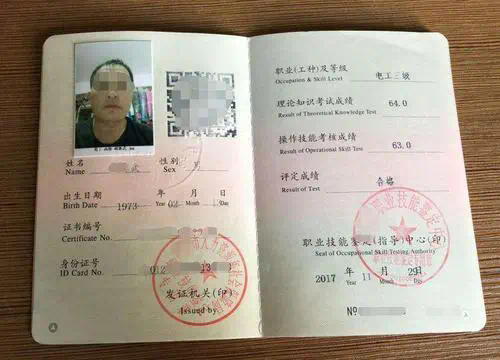 姓名
Name
性别 男
Sex
出生日期 1973 年 02 月 日
Birth Date Year Month Day
证书编号
Certificate No.
身份证号 012 13
ID Card No.
发证机关(印)
Issued by
职业(工种)及等级 电工三级
Occupation & Skill Level
理论知识考试成绩 64.0
Result of Theoretical Knowledge Test
操作技能考核成绩 63.0
Result of Operational Skill Test
评定成绩 合格
Result of Test
职业技能鉴定(指导)中心(印)
Seal of Occupational Skill Testing Authority
2017 年 11 月 29 日
Year Month Day
№